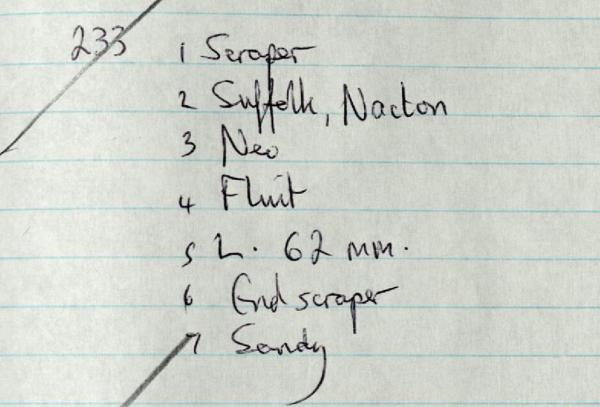 233 1 Scraper
2 Suffolk, Nacton
3 Neo
4 Flint
5 L. 62 mm.
6 End scraper
7 Sandy